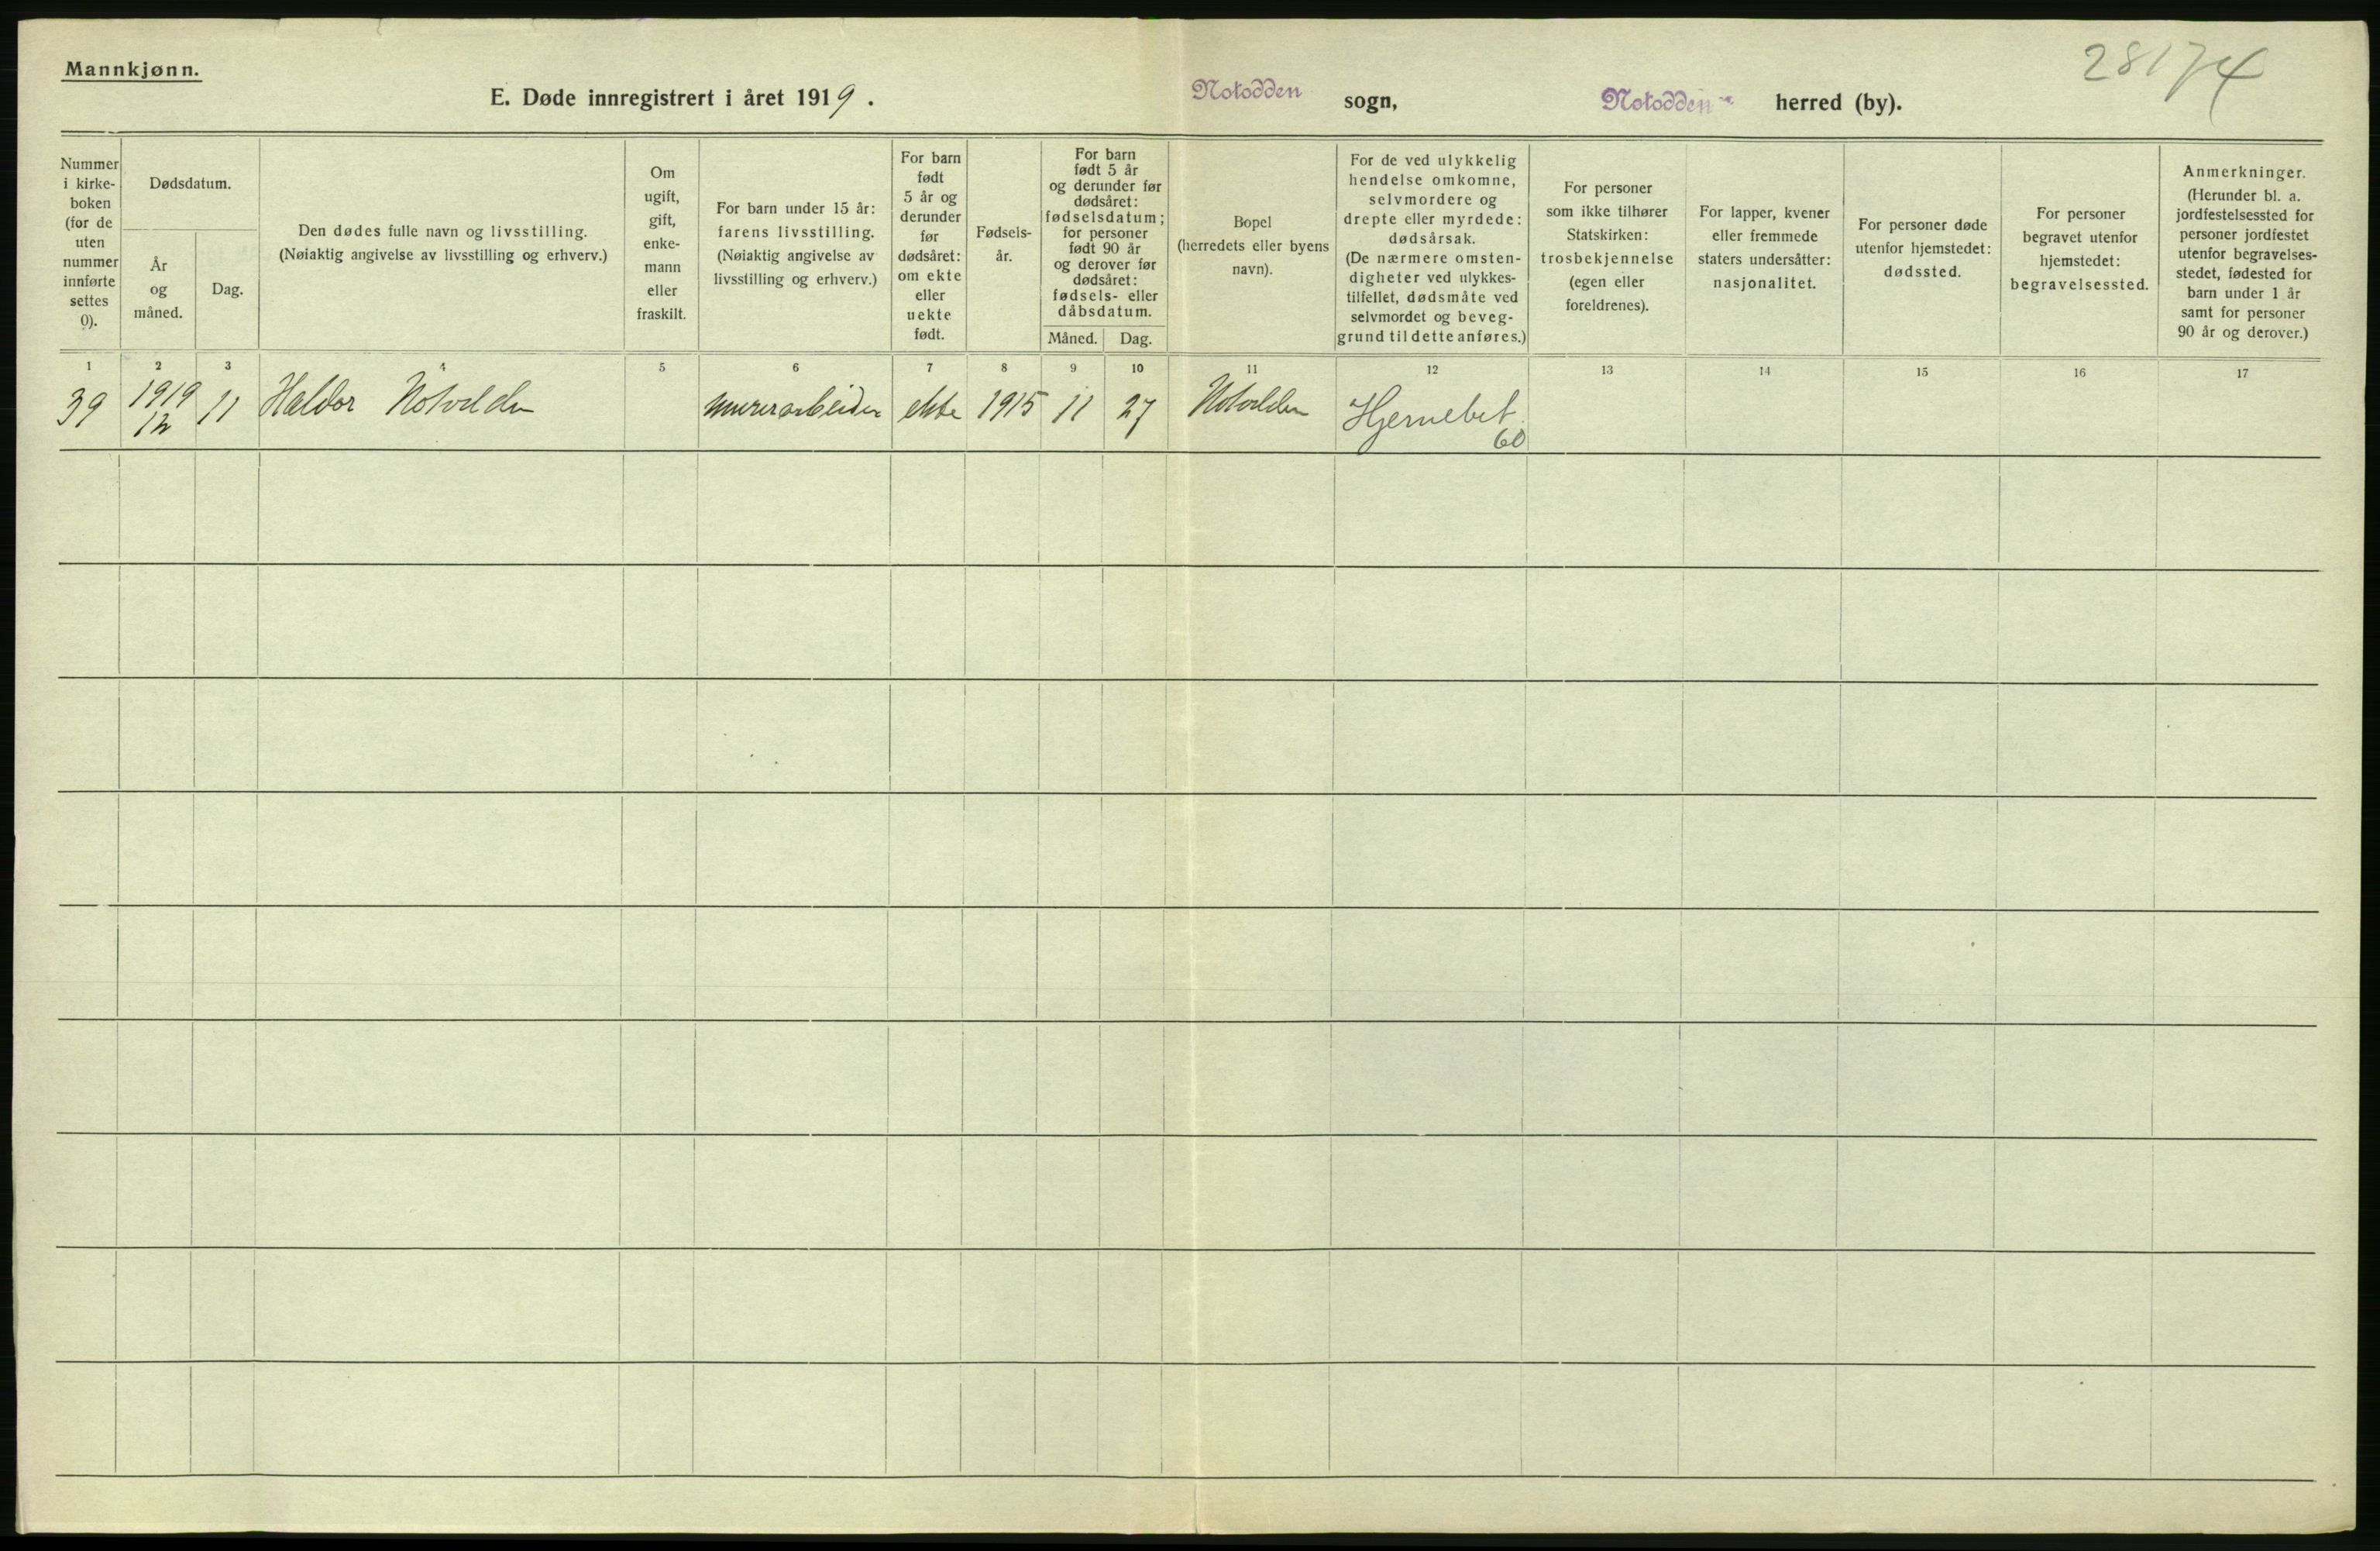 Mannkjønn.
28174
E. Døde innregistrert i året 1919.
Notodden sogn, Notodden herred (by).
Nummer
i kirke-
boken
(for de
uten
nummer
innførte
settes
0).
Dødsdatum.
År
og
måned.
Dag.
Den dødes fulle navn og livsstilling.
(Nøiaktig angivelse av livsstilling og erhverv.)
Om
ugift,
gift,
enke-
mann
eller
fraskilt.
For barn under 15 år:
farens livsstilling.
(Nøiaktig angivelse av
livsstilling og erhverv.)
For barn
født
5 år og
derunder
før
dødsåret:
om ekte
eller
uekte
født.
Fødsels-
år.
For barn
født 5 år
og derunder før
dødsåret:
fødselsdatum;
for personer
født 90 år
og derover før
dødsåret:
fødsels- eller
dåbsdatum.
Måned. Dag.
Bopel
(herredets eller byens
navn).
For de ved ulykkelig
hendelse omkomne,
selvmordere og
drepte eller myrdede:
dødsårsak.
(De nærmere omsten-
digheter ved ulykkes-
tilfellet, dødsmåte ved
selvmordet og beveg-
grund til dette anføres.)
For personer
som ikke tilhører
Statskirken:
trosbekjennelse
(egen eller
foreldrenes).
For lapper, kvener
eller fremmede
staters undersåtter:
nasjonalitet.
For personer døde
utenfor hjemstedet:
dødssted.
For personer
begravet utenfor
hjemstedet:
begravelsessted.
Anmerkninger.
(Herunder bl. a.
jordfestelsessted for
personer jordfestet
utenfor begravelses-
stedet, fødested for
barn under 1 år
samt for personer
90 år og derover.)
1 2 3 4 5 6 7 8 9 10 11 12 13 14 15 16 17
39 1919 11 Haldor Notodden murerarbeider ekte 1915 11 27 Notodden Hjernebet.
12 60